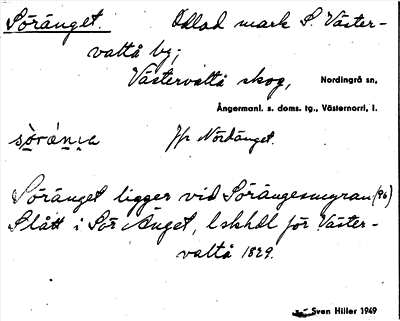 Söränget. Odlad mark S. Väster-
vattå by;
Västervattå skog, Nordingrå sn,
Ångermanl. s. doms. tg., Västernorrl. l.
Jfr Nordänget.
Söränget ligger vid Sörängesmyran (86)
Slått i Sör Änget, l skhdl för Väster-
vattå 1829.
Sven Hiller 1949